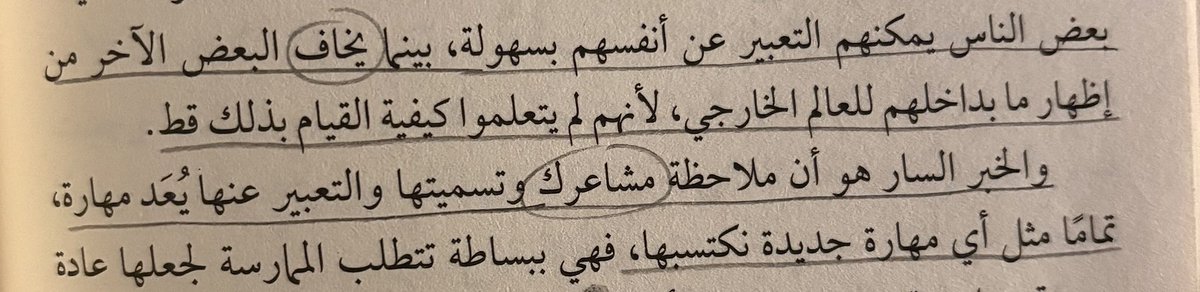 بعض الناس يمكنهم التعبير عن أنفسهم بسهولة، بينما يخاف البعض الآخر من
إظهار ما بداخلهم للعالم الخارجي، لأنهم لم يتعلموا كيفية القيام بذلك قط.
والخبر السار هو أن ملاحظة مشاعرك وتسميتها والتعبير عنها يُعَد مهارة،
تمامًا مثل أي مهارة جديدة نكتسبها، فهي ببساطة تتطلب الممارسة لجعلها عادة